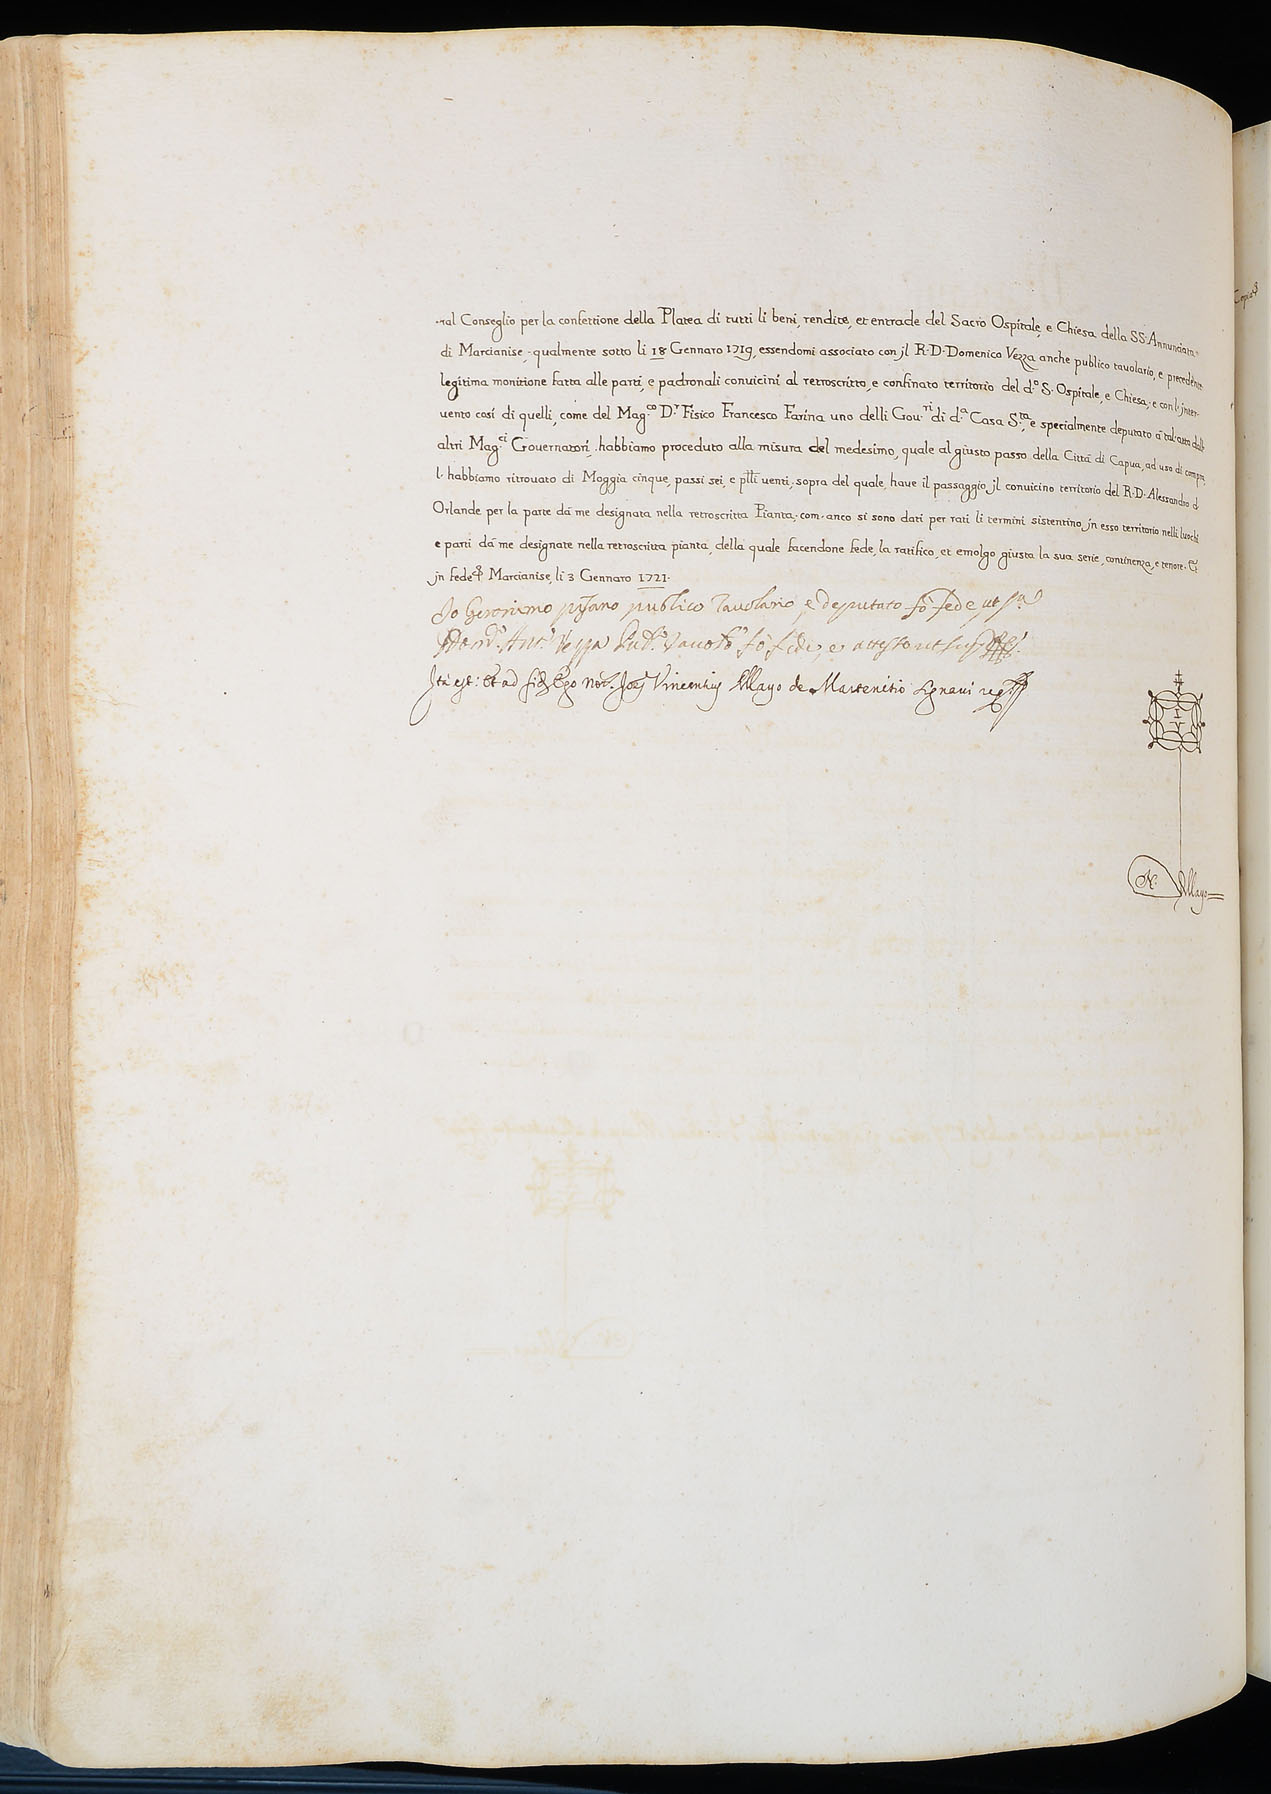 -ral Conseglio per la confettione della Platea di tutti li beni, rendite, et entrade del Sacro Ospitale, e Chiesa della SS. Annunciata
di Marcianise, qualmente sotto li 18 Gennaro 1719, essendomi associato con jl R. D. Domenico Vezza anche publico tavolario, e precedente
legitima monitione fatta alle parti, e padronali convicini al retroscritto, e confinato territorio del d.º S. Ospitale, e Chiesa, e con l'inter-
vento cosí di quelli, come del Mag.co D.r Fisico Francesco Farina uno delli Gou.ri di d.a Casa S.ta, e specialmente deputato á tal atto dalli
altri Mag.ci Governatori, habbiamo proceduto alla misura del medesimo, quale al giusto passo della Cittá di Capua, ad uso di compra,
l'habbiamo ritrovato di Moggia cinque, passi sei, e venti, sopra del quale, have il passaggio jl convicino territorio del R. D. Alessandro d'
Orlande per la parte dá me designata nella retroscritta Pianta, com'anco si sono dati per rati li termini sistentino jn esso territorio nelli luochi
e parti dá me designate nella retroscritta pianta, della quale facendone fede, la ratifico, et emolgo giusta la sua serie, continenza, e tenore. Et
jn fede Marcianise, li 3 Gennaro 1721.
Io Geronimo pisano publico Tavolario, e deputato fó fede ut s.a
Vezza Pub.co Tavol.º fó fede, e attesto ut sup.
Ita est: Et ad fid. Ego Not. Joes Vincentius Mayo de Martenisio signavi reg.
I V
N. Mayo
Copia